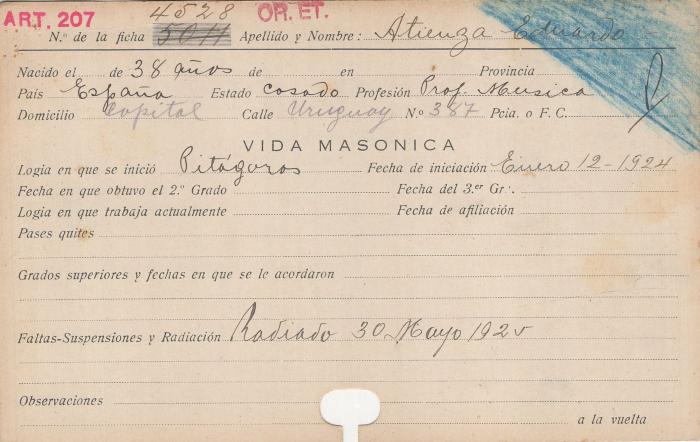 ART. 207 4528 OR. ET.
N.º de la ficha 5011 Apellido y Nombre: Atienza Eduardo
Nacido el de 38 años de en Provincia
País España Estado casado Profesión Prof. Musica
Domicilio Capital Calle Uruguay Nº 387 Pcia. o F. C.
VIDA MASONICA
Logia en que se inició Pitágoras Fecha de iniciación Enero 12-1924
Fecha en que obtuvo el 2.º Grado Fecha del 3.er Gr∴
Logia en que trabaja actualmente Fecha de afiliación
Pases quites
Grados superiores y fechas en que se le acordaron
Faltas-Suspensiones y Radiación Radiado 30 Mayo 1925
Observaciones
a la vuelta